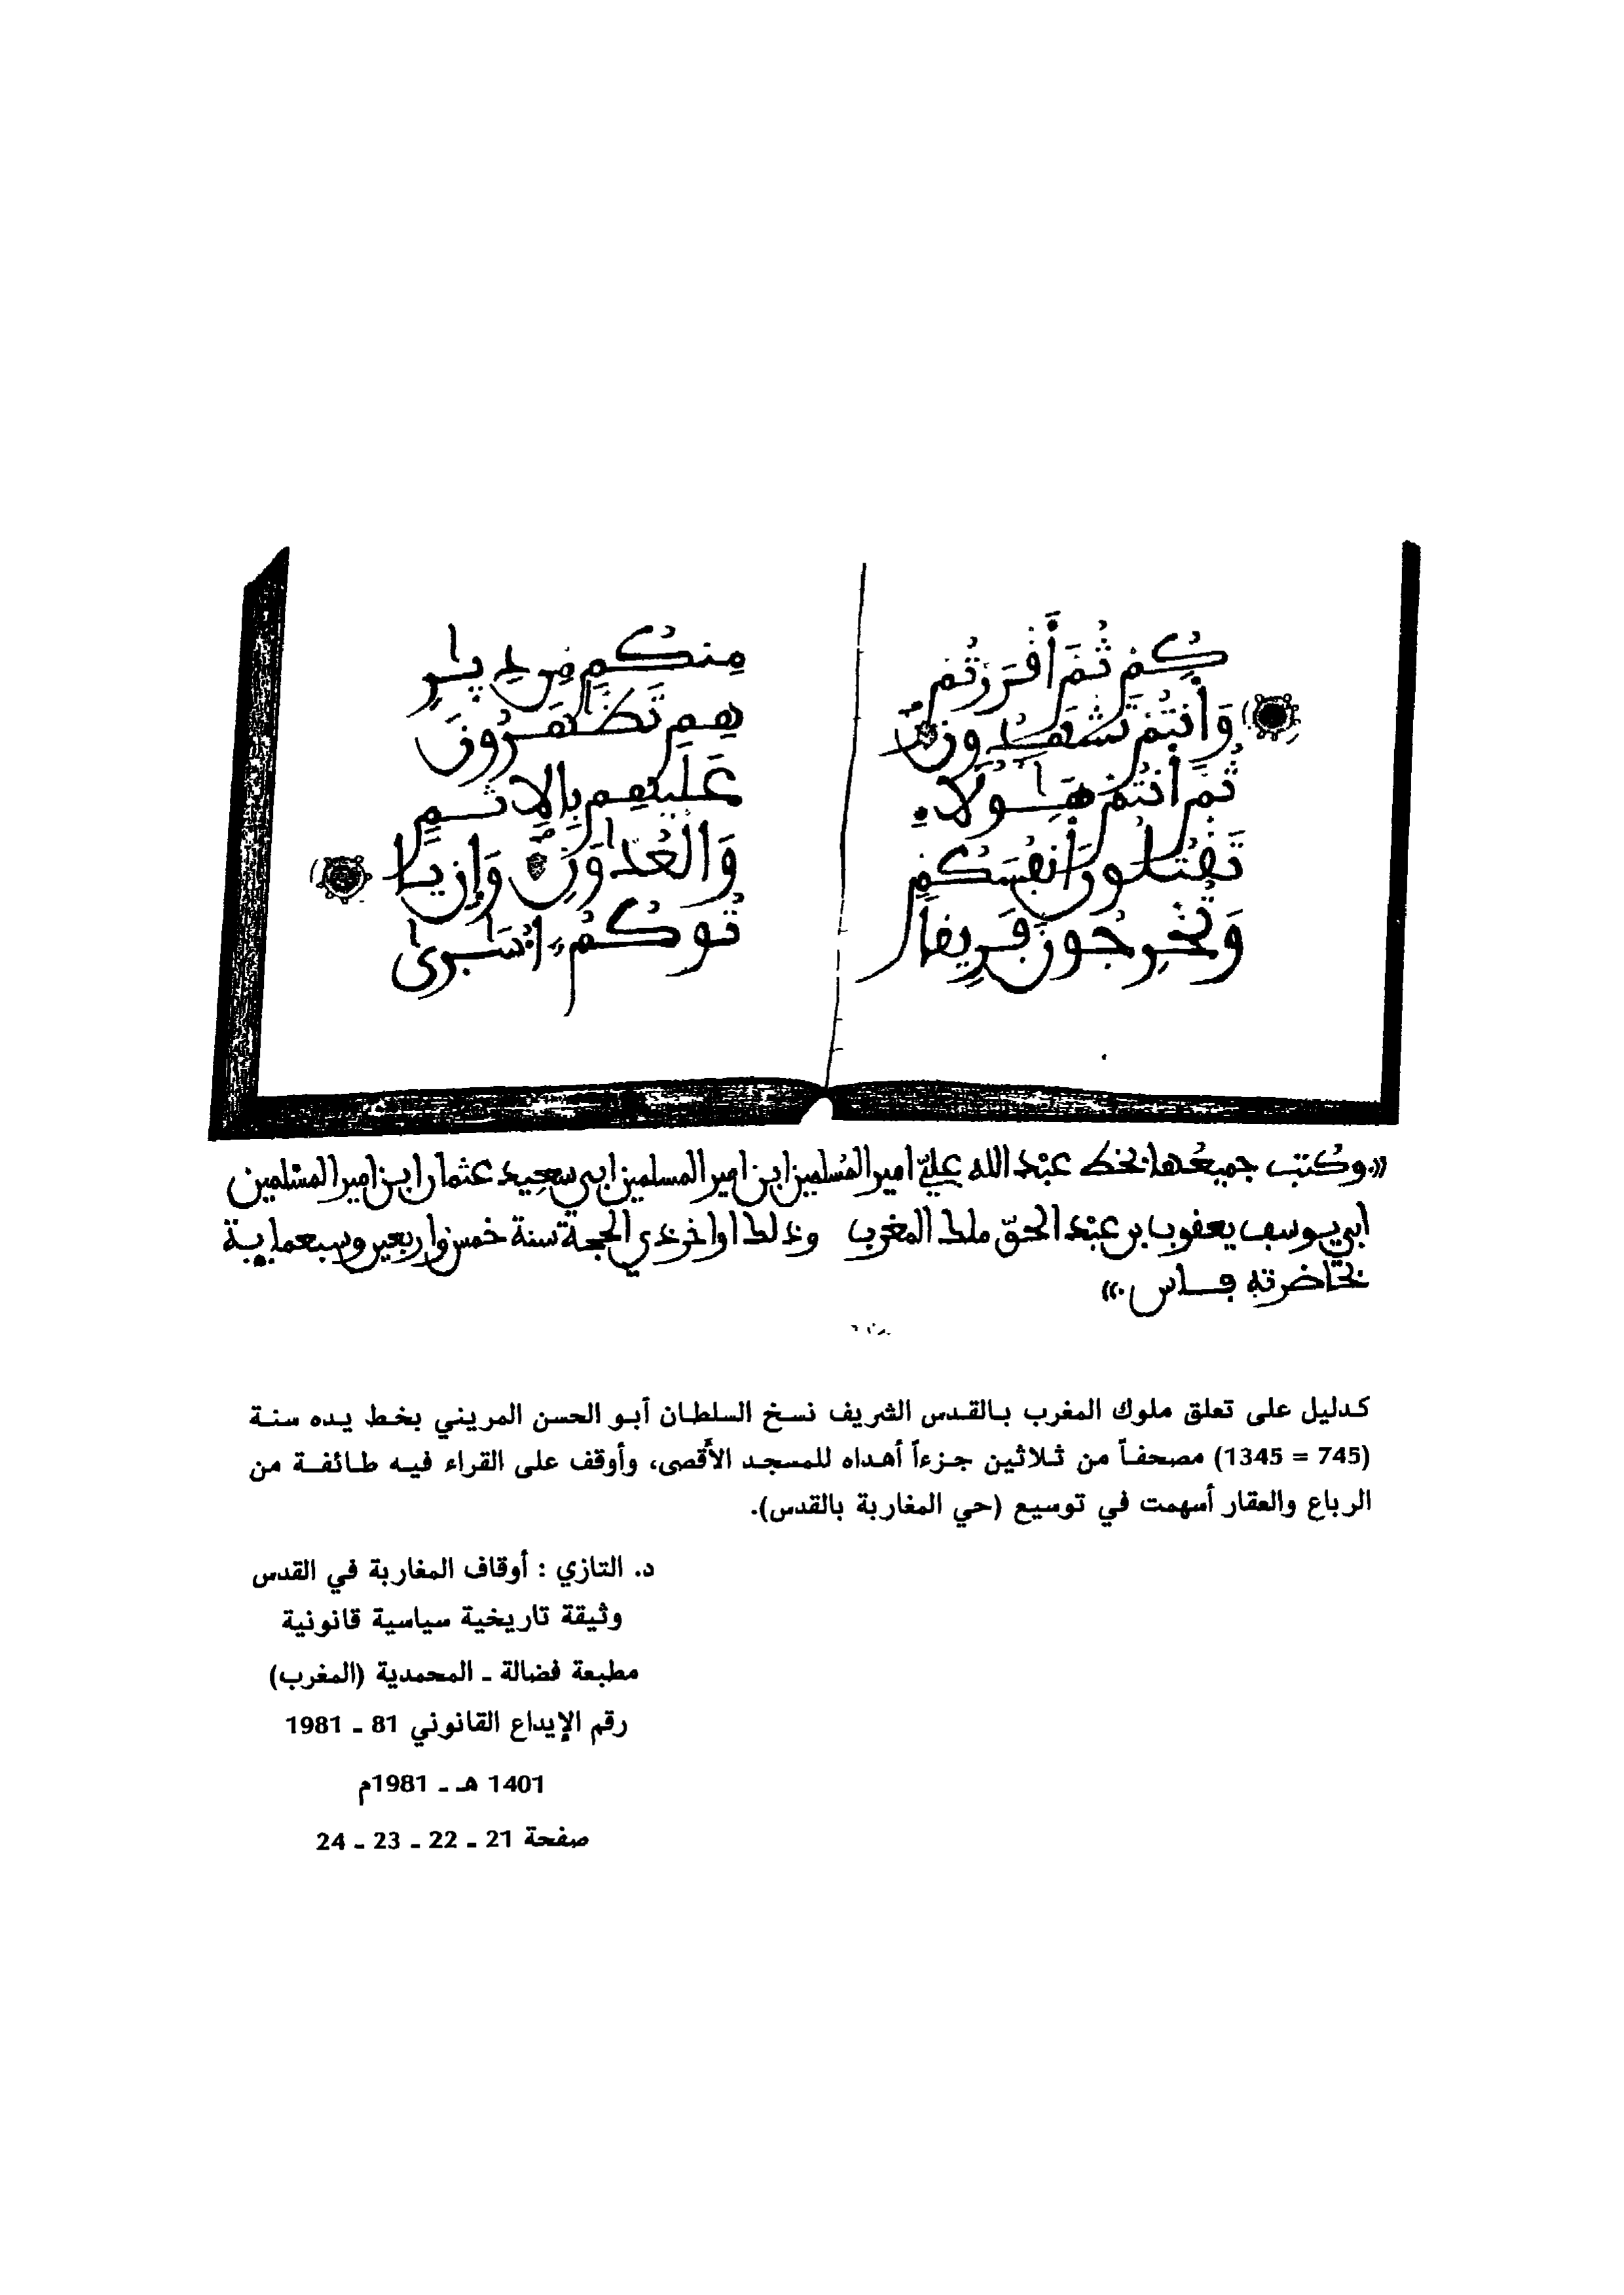 كُمْ ثُمَّ أَقْرَرْتُمْ
وَأَنتُمْ تَشْهَدُونَ
ثُمَّ أَنتُمْ هَٰؤُلَاءِ
تَقْتُلُونَ أَنفُسَكُمْ
وَتُخْرِجُونَ فَرِيقاً
مِنكُم مِّن دِيَٰرِ
هِمْ تَظَّٰهَرُونَ
عَلَيْهِم بِالْإِثْمِ
وَالْعُدْوَٰنِ وَإِن يَا
تُوكُمُ أُسَٰرَىٰ
«.وكُتب جميعُها بخط عبْد الله عليّ امير المُسلمين ابن امير المسلمين ابي سعيد عثمان ابن امير المسْلمين
ابي يوسف يعقوب بن عبْد الحقّ ملك المغرب وذلك اواخر ذي الحجة سنة خمس واربعين وسبعماية
بحَاضرته فاس.»
كدليل على تعلق ملوك المغرب بالقدس الشريف نسخ السلطان أبو الحسن المريني بخط يده سنة
(745 = 1345) مصحفاً من ثلاثين جزءاً أهداه للمسجد الأقصى، وأوقف على القراء فيه طائفة من
الرباع والعقار أسهمت في توسيع (حي المغاربة بالقدس).
د. التازي : أوقاف المغاربة في القدس
وثيقة تاريخية سياسية قانونية
مطبعة فضالة ـ المحمدية (المغرب)
رقم الإيداع القانوني 81 ـ 1981
1401 هـ ـ 1981م
صفحة 21 ـ 22 ـ 23 ـ 24